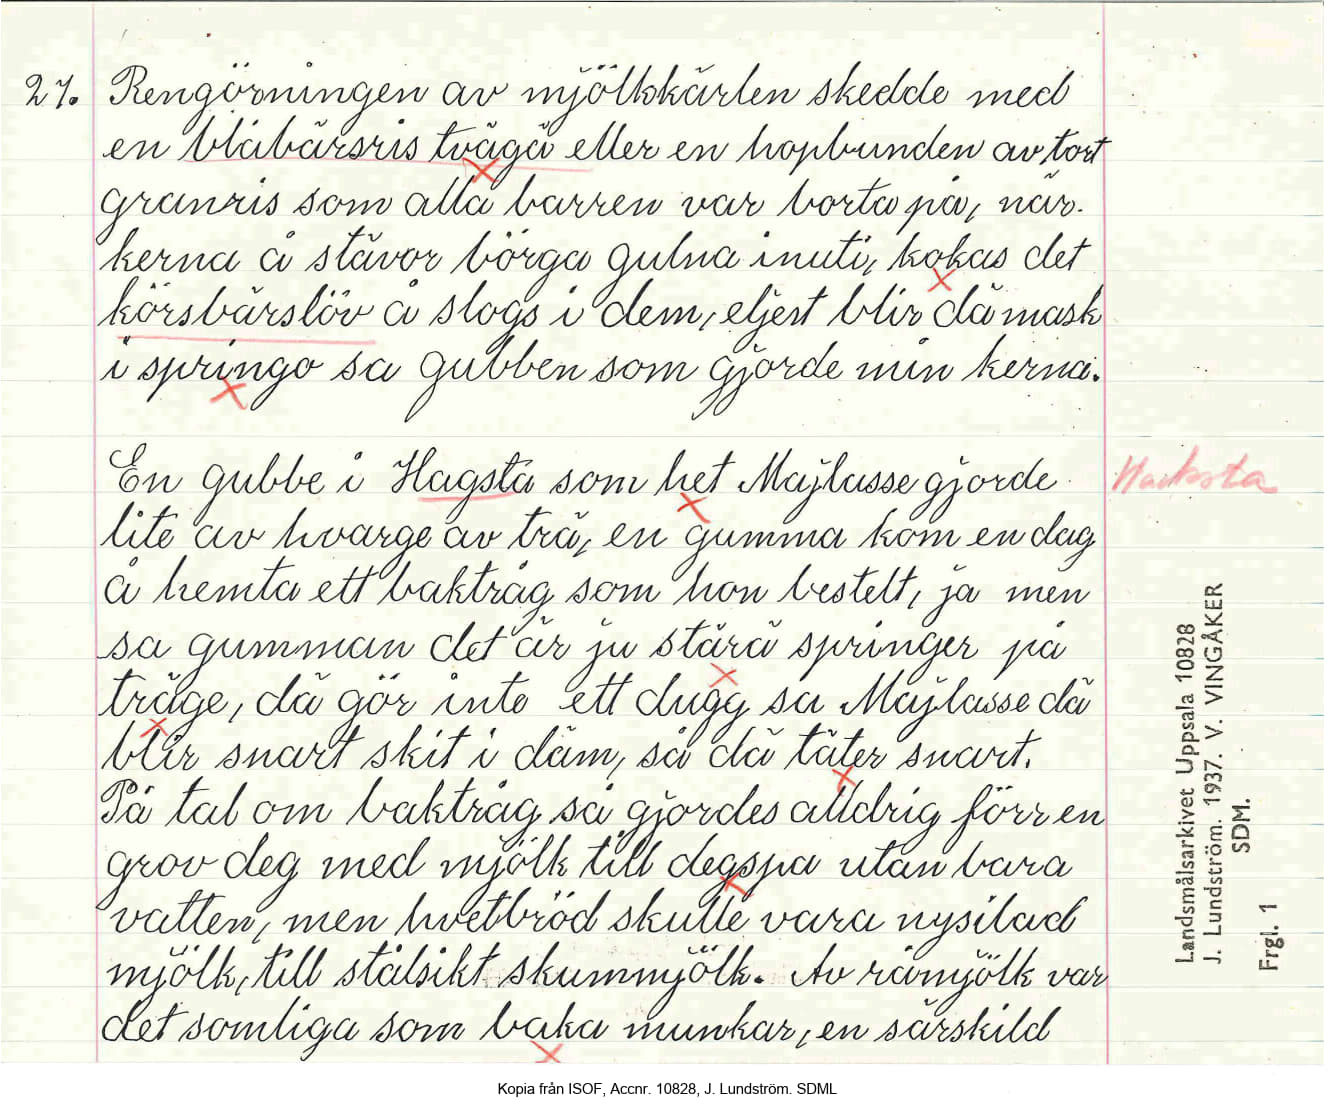 27. Rengörningen av mjölkkärlen skedde med
en blåbärsris tvägä eller en hopbunden av tort
granris som alla barren var borta på, när
kerna å stävor börga gulna inuti, kokas det
körsbärslöv å slogs i dem, eljest blir dä mask
i springo sa gubben som gjorde min kerna.
En gubbe i Hagsta som het Majlasse gjorde
lite av hvarge av trä, en gumma kom en dag
å hemta ett baktråg som hon bestelt, ja men
sa gumman det är ju störä springer på
träge, dä gör inte ett dugg sa Majlasse dä
blir snart skit i däm, så dä täter snart.
På tal om baktråg så gjordes alldrig förr en
grov deg med mjölk till degspa utan bara
vatten, men hvetbröd skulle vara nysilad
mjölk, till stålsikt skummjölk. Av råmjölk var
det somliga som baka munkar, en särskild
Hacksta
Landsmålsarkivet Uppsala 10828
J. Lundström. 1937. V. VINGÅKER
SDM.
Frgl. 1
Kopia från ISOF, Accnr. 10828, J. Lundström. SDML